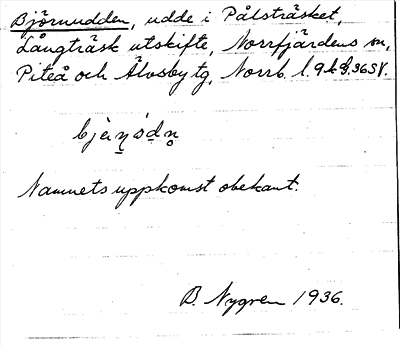 Björnudden, udde i Pålsträsket,
Långträsk utskifte, Norrfjärdens sn,
Piteå och Älvsby tg, Norrb. l. 9 k
Namnets uppkomst obekant.
B. Nygren 1936.